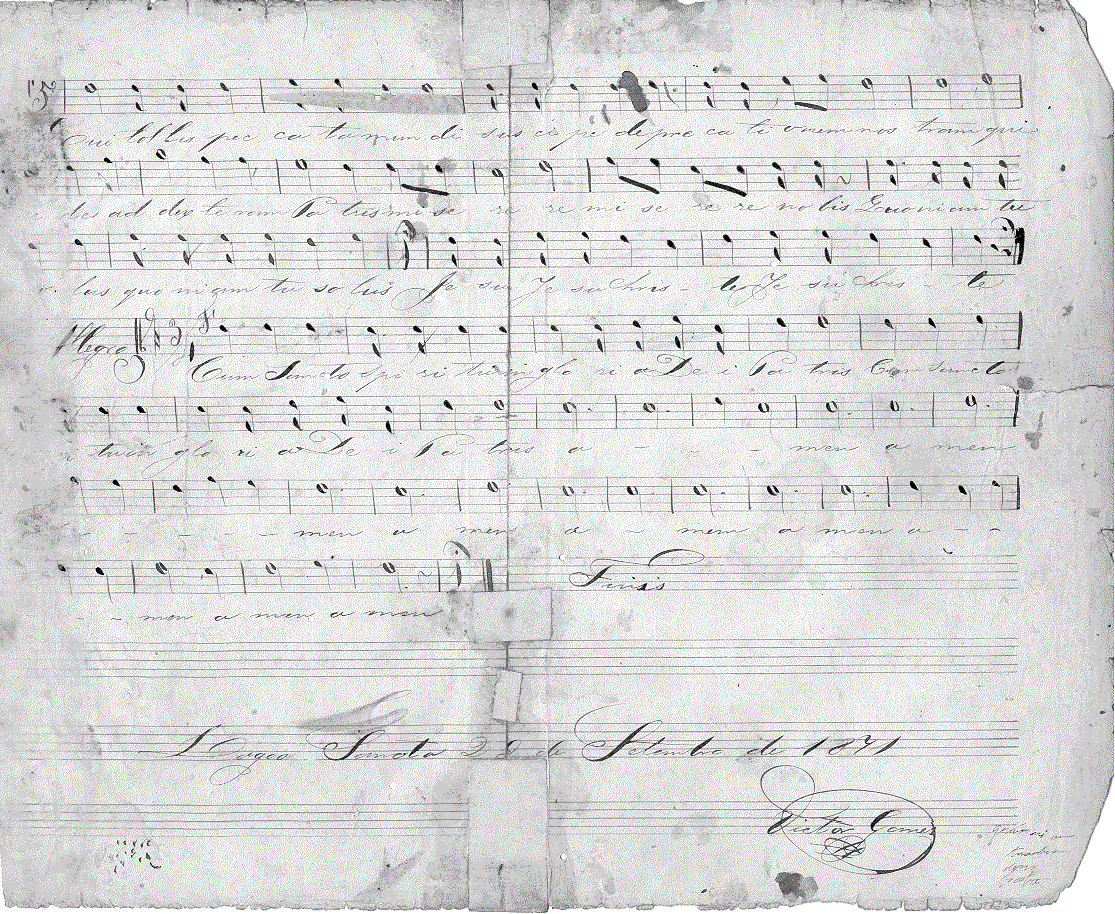 Qui tollis pec ca ta mun di sus ci pe depre ca ti onem nos tram qui
des ad dex te ram Pa tris mi se re re mi se re re no bis Quoniam tu
so lus quo ni am tu so lus Je su Je su Chris - te Je su Chris - te
Allegro
Cum Sancto Spi ri tu in glo ri a De i Pa tris Cum Sancto
ri tu in glo ri a De i Pa tris a - - - men a men
- - - - - men a men a - men a men a - -
- - men a men a men
Finis
Lagoa Santa 22 de Setembro de 1871
Victor Gomes